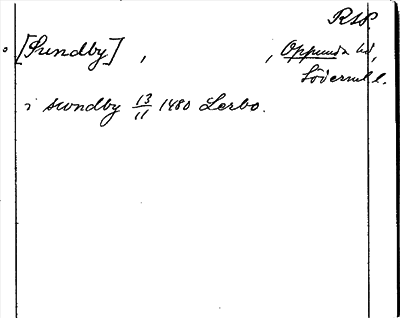 RSP
[Sundby] , , Oppunda hd,
Söderml l.
i swndby 13/11 1480 Lerbo.